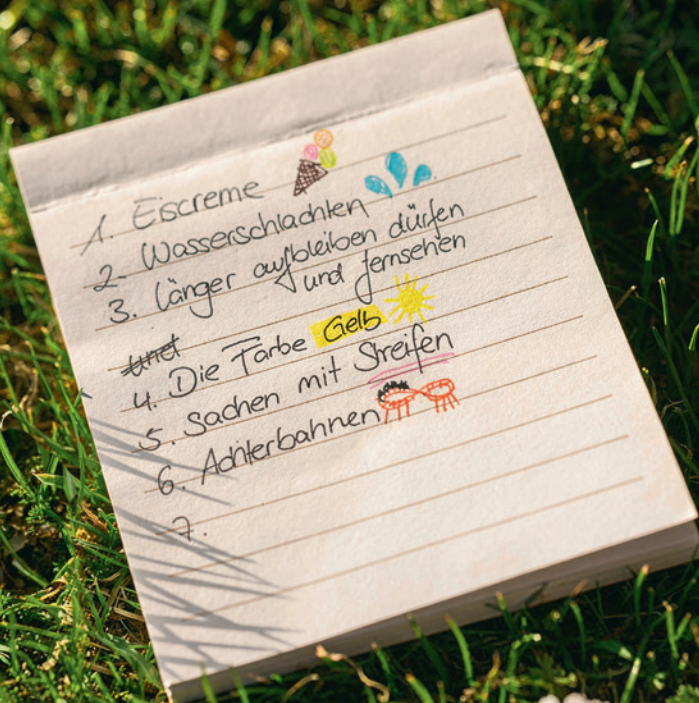 1. Eiscreme
2. Wasserschlachten
3. länger aufbleiben dürfen
und fernsehen
und
4. Die Farbe Gelb
5. Sachen mit Streifen
6. Achterbahnen
7.